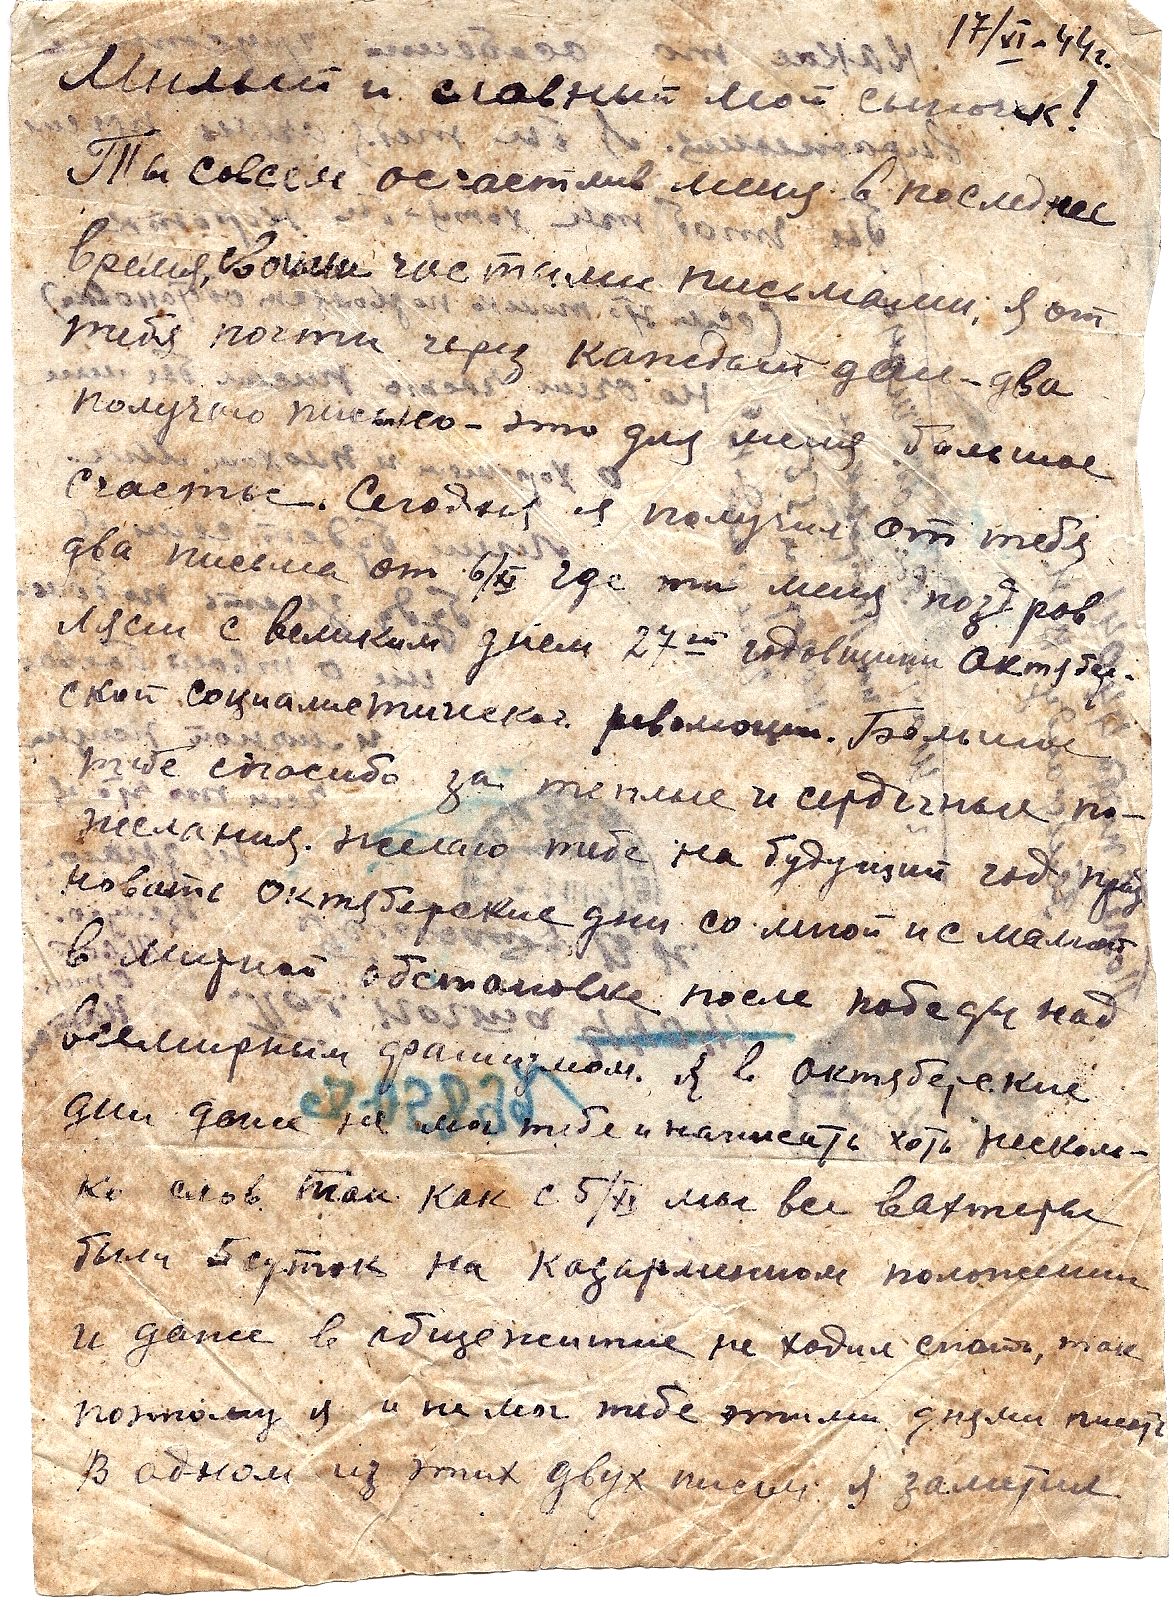 17/XI-44г.
Милый и славный мой сыночек!
Ты совсем осчастлив меня в последнее
время, своими частыми письмами, я от
тебя почти через каждый день-два
получаю письмо - это для меня большое
счастье. Сегодня я получил от тебя
два письма от 6/XI где ты меня поздров
ляеш с великим днем 27ой годовщины Октябрь-
ской социалистической революции. Большое
тебе спасибо за теплые и сердечные по-
желания. желаю тебе на будущий год празд
новать Октябрьские дни со мной и с мамой
в мирной обстановке после победы над
всемирным фашизмом. Я в октябрьские
дни даже не мог тебе и написать хоть несколь-
ко слов так как с 5/XI мы все вахтеры
были 5 суток на казарменном положении
и даже в общежитие не ходил спать, так
поэтому я и не мог тебе этими днями писать
В одном из этих двух писем я заметил